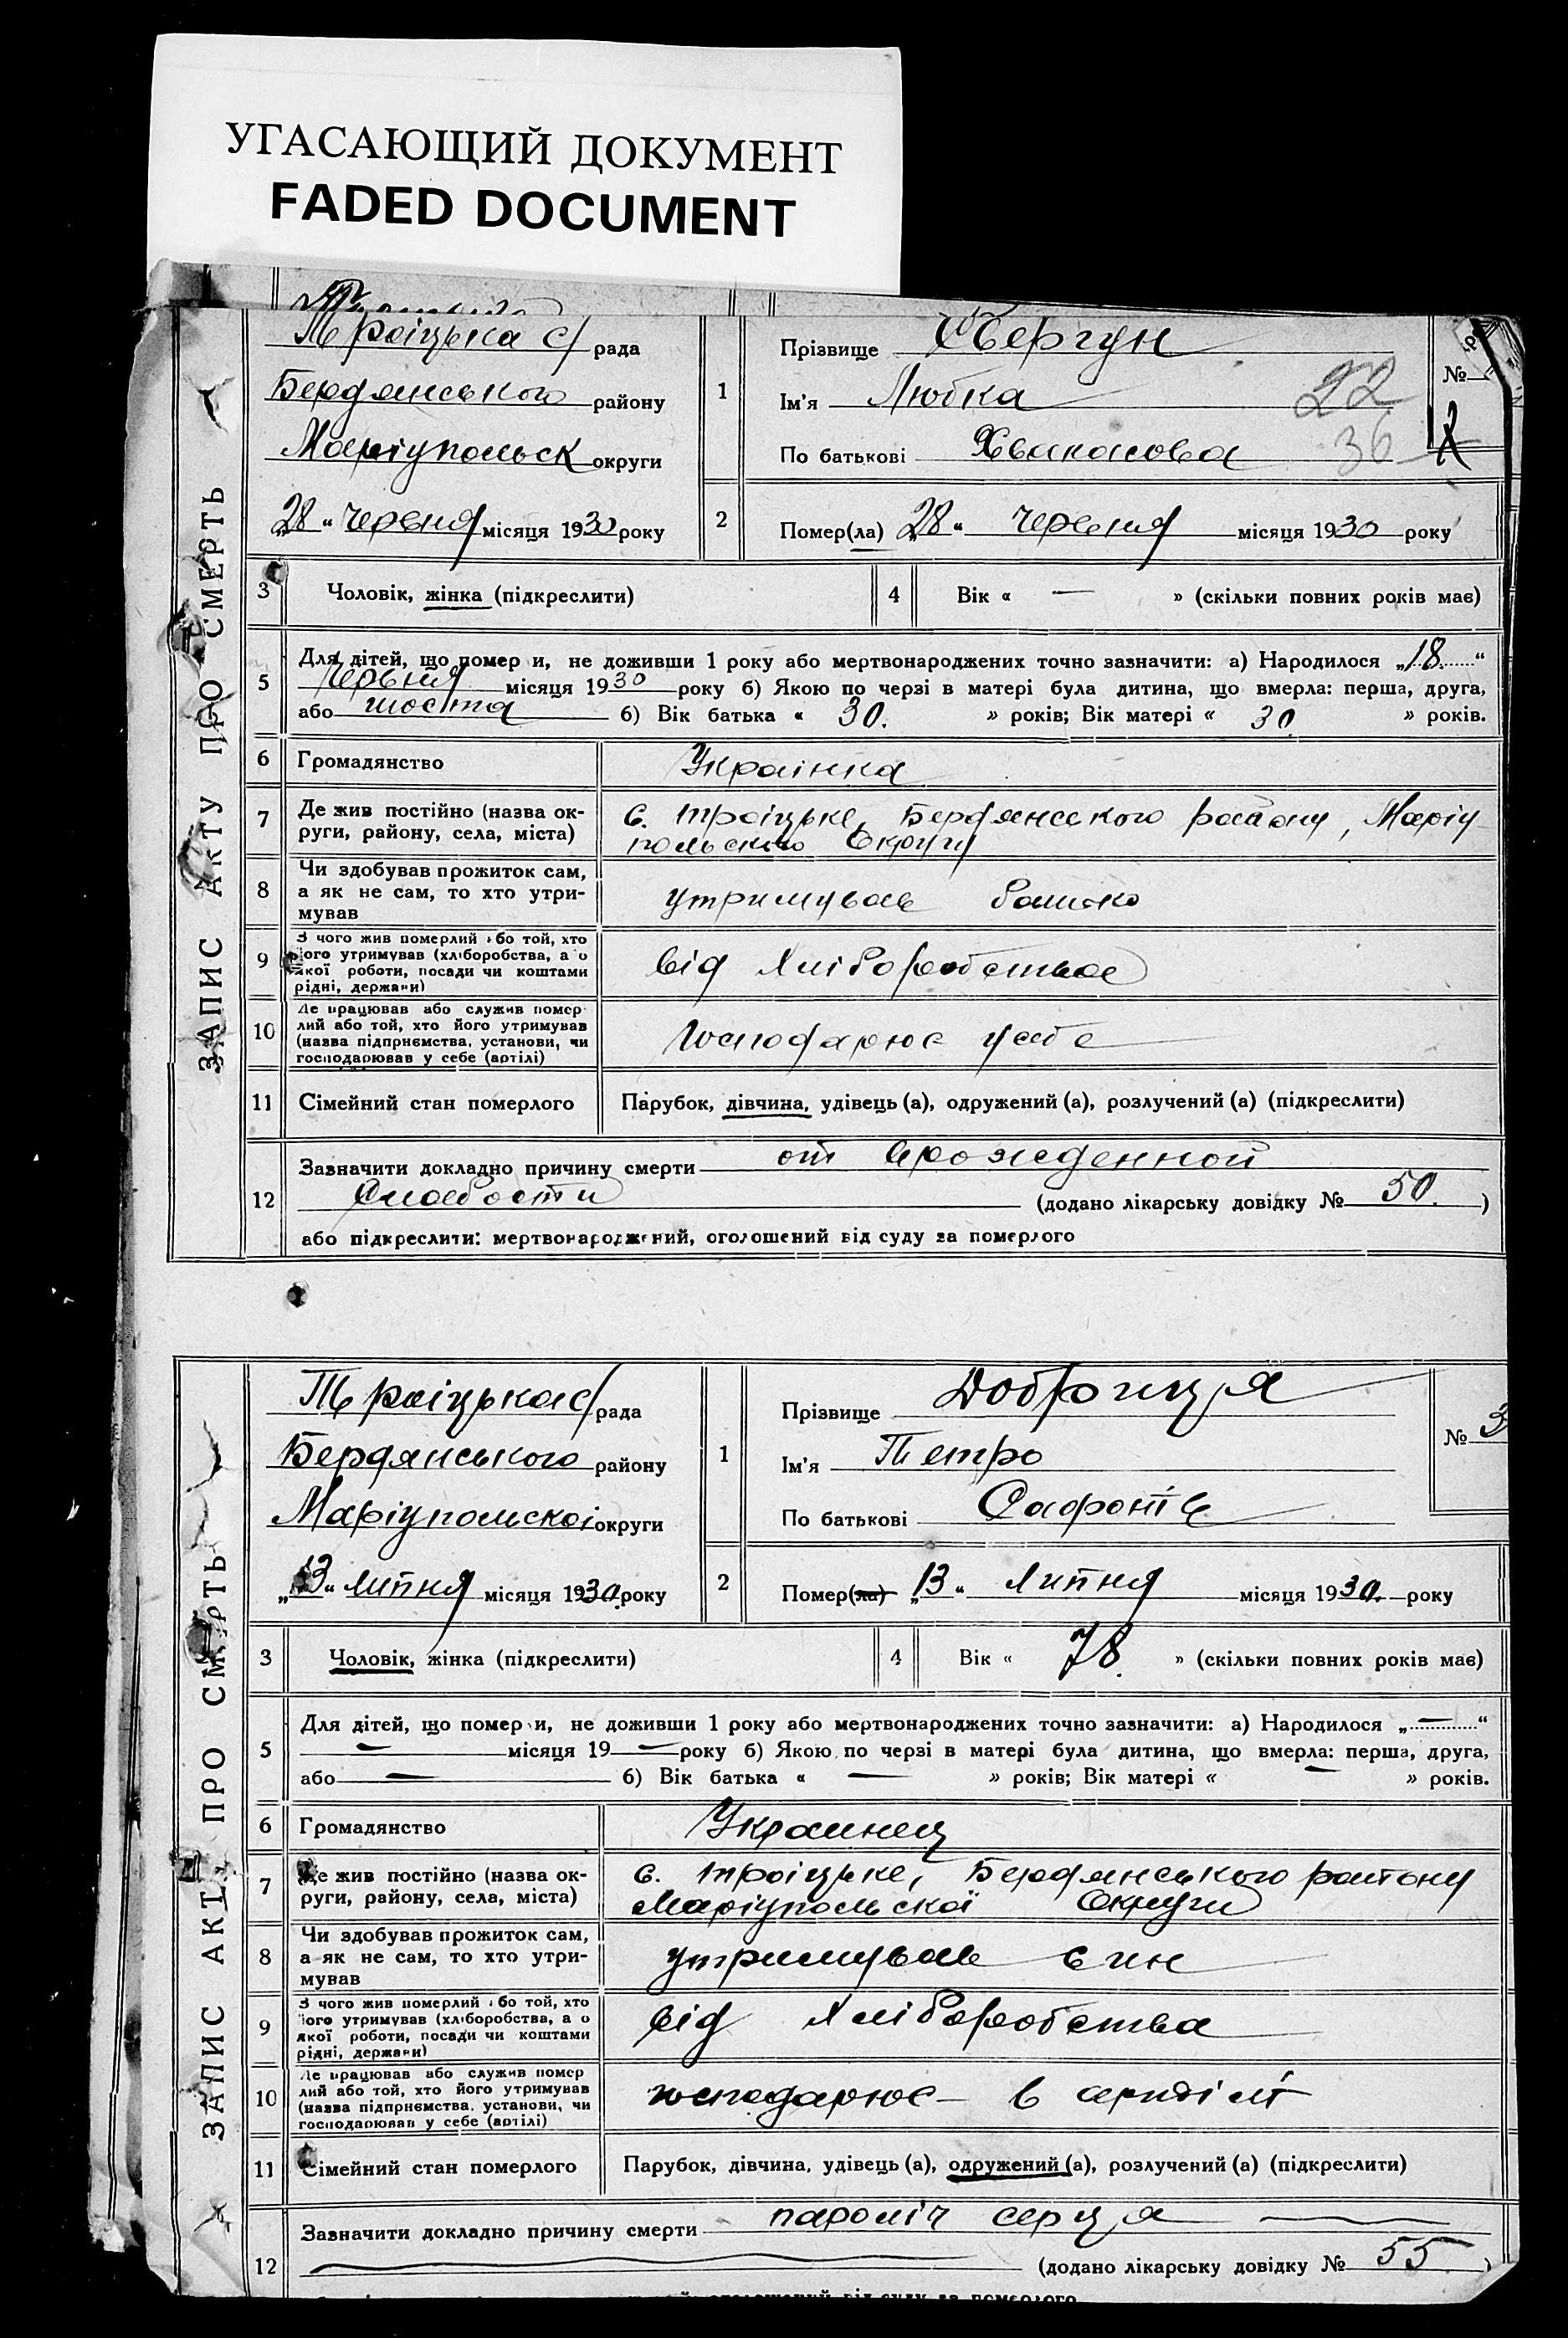 УГАСАЮЩИЙ ДОКУМЕНТ
FADED DOCUMENT
ЗАПИС АКТУ ПРО СМЕРТЬ
Троіцька с/рада
Бердянського району
Маріупольск округи
„28“ Червня місяця 1930 року
1
Прізвище
Ім'я Любка
22
По батькові
36
№
2
Помер(ла) „28“ Червня місяця 1930 року
3 Чоловік, жінка (підкреслити)
4 Вік « — » (скільки повних років має)
5 Для дітей, що помер и, не доживши 1 року або мертвонароджених точно зазначити: а) Народилося „18“
Червня місяця 1930 року б) Якою по черзі в матері була дитина, що вмерла: перша, друга,
або шоста б) Вік батька « 30. » років; Вік матері « 30. » років.
6 Громадянство Украінка
7 Де жив постійно (назва ок-
руги, району, села, міста)
с. Троіцьке, Бердянського району, Маріу-
польської Округи
8 Чи здобував прожиток сам,
а як не сам, то хто утри-
мував
утримував батько
9 З чого жив померлий або той, хто
його утримував (хліборобства, а о
якої роботи, посади чи коштами
рідні, держави)
від Хліборобства
10 Де працював або служив помер
лий або той, хто його утримував
(назва підприємства, установи, чи
господарював у себе (артілі)
Господарює у себе
11 Сімейний стан померлого Парубок, дівчина, удівець (а), одружений (а), розлучений (а) (підкреслити)
12 Зазначити докладно причину смерти от врожденной
Слабости (додано лікарську довідку № 50. )
або підкреслити: мертвонароджений, оголошений від суду за померлого
ЗАПИС АКТУ ПРО СМЕРТЬ
Троіцька с/рада
Бердянського району
Маріупольскоі округи
„13“ Липня місяця 1930. року
1
Прізвище Добриця
Ім'я Петро
По батькові Сафонів
№ 3
2
Помер(ла) „13“ Липня місяця 1930. року
3 Чоловік, жінка (підкреслити)
4 Вік « 78. » (скільки повних років має)
5 Для дітей, що помер и, не доживши 1 року або мертвонароджених точно зазначити: а) Народилося „—“
— місяця 19 — року б) Якою по черзі в матері була дитина, що вмерла: перша, друга,
або — б) Вік батька « — » років; Вік матері « — » років.
6 Громадянство Украинец
7 Де жив постійно (назва ок-
руги, району, села, міста)
с. Троіцьке, Бердянського району
Маріупольскої Округи
8 Чи здобував прожиток сам,
а як не сам, то хто утри-
мував
утримував син
9 З чого жив померлий або той, хто
його утримував (хліборобства, а о
якої роботи, посади чи коштами
рідні, держави)
від Хліборобства
10 Де працював або служив помер
лий або той, хто його утримував
(назва підприємства, установи, чи
господарював у себе (артілі)
господарює в артілі
11 Сімейний стан померлого Парубок, дівчина, удівець (а), одружений (а), розлучений (а) (підкреслити)
12 Зазначити докладно причину смерти параліч серця
(додано лікарську довідку № 55 )
оголошений від суду за померлого